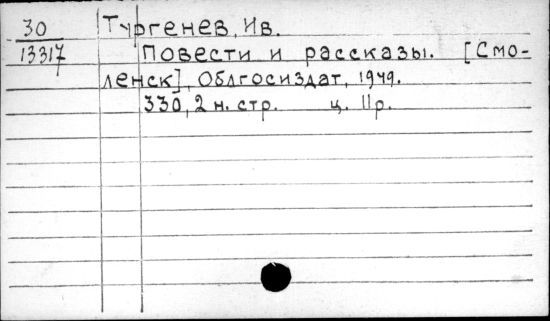 30 Тургенев, Ив.
13317 Повести и рассказы. [Смо-
ленск], Облгосиздат, 1949.
330, 2 н. стр. ц. 11р.